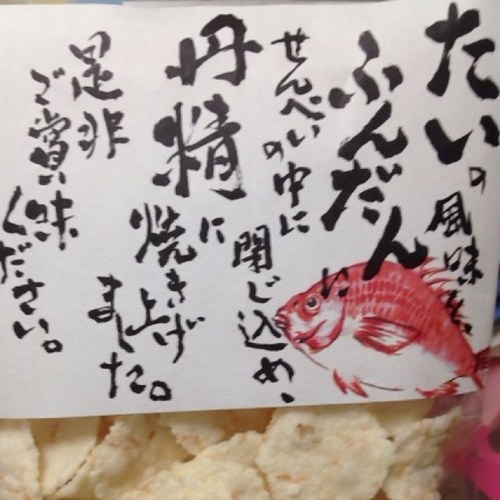 たいの風味を、
ふんだんに
せんべいの中に
閉じ込め、
丹精に
焼き上げ
ました。
是非
ご賞味
ください。